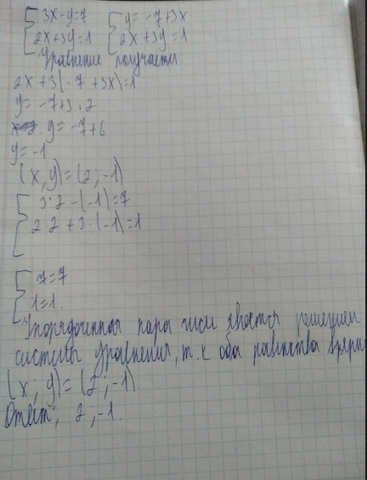 {3x-y=7 {y=-7+3x
{2x+3y=1 {2x+3y=1
Уравнение получается
2x+3(-7+3x)=1
y=-7+3·2
y=-7+6
y=-1
(x,y)=(2,-1)
{3·2-(-1)=7
{2·2+3·(-1)=1
{7=7
{1=1.
Упорядоченная пара чисел является решением
системы уравнения, т.к оба равенства верны
(x, y)=(2;-1).
Ответ; 2,-1.